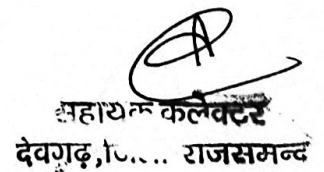 सहायक कलेक्टर
देवगढ़, राजसमन्द